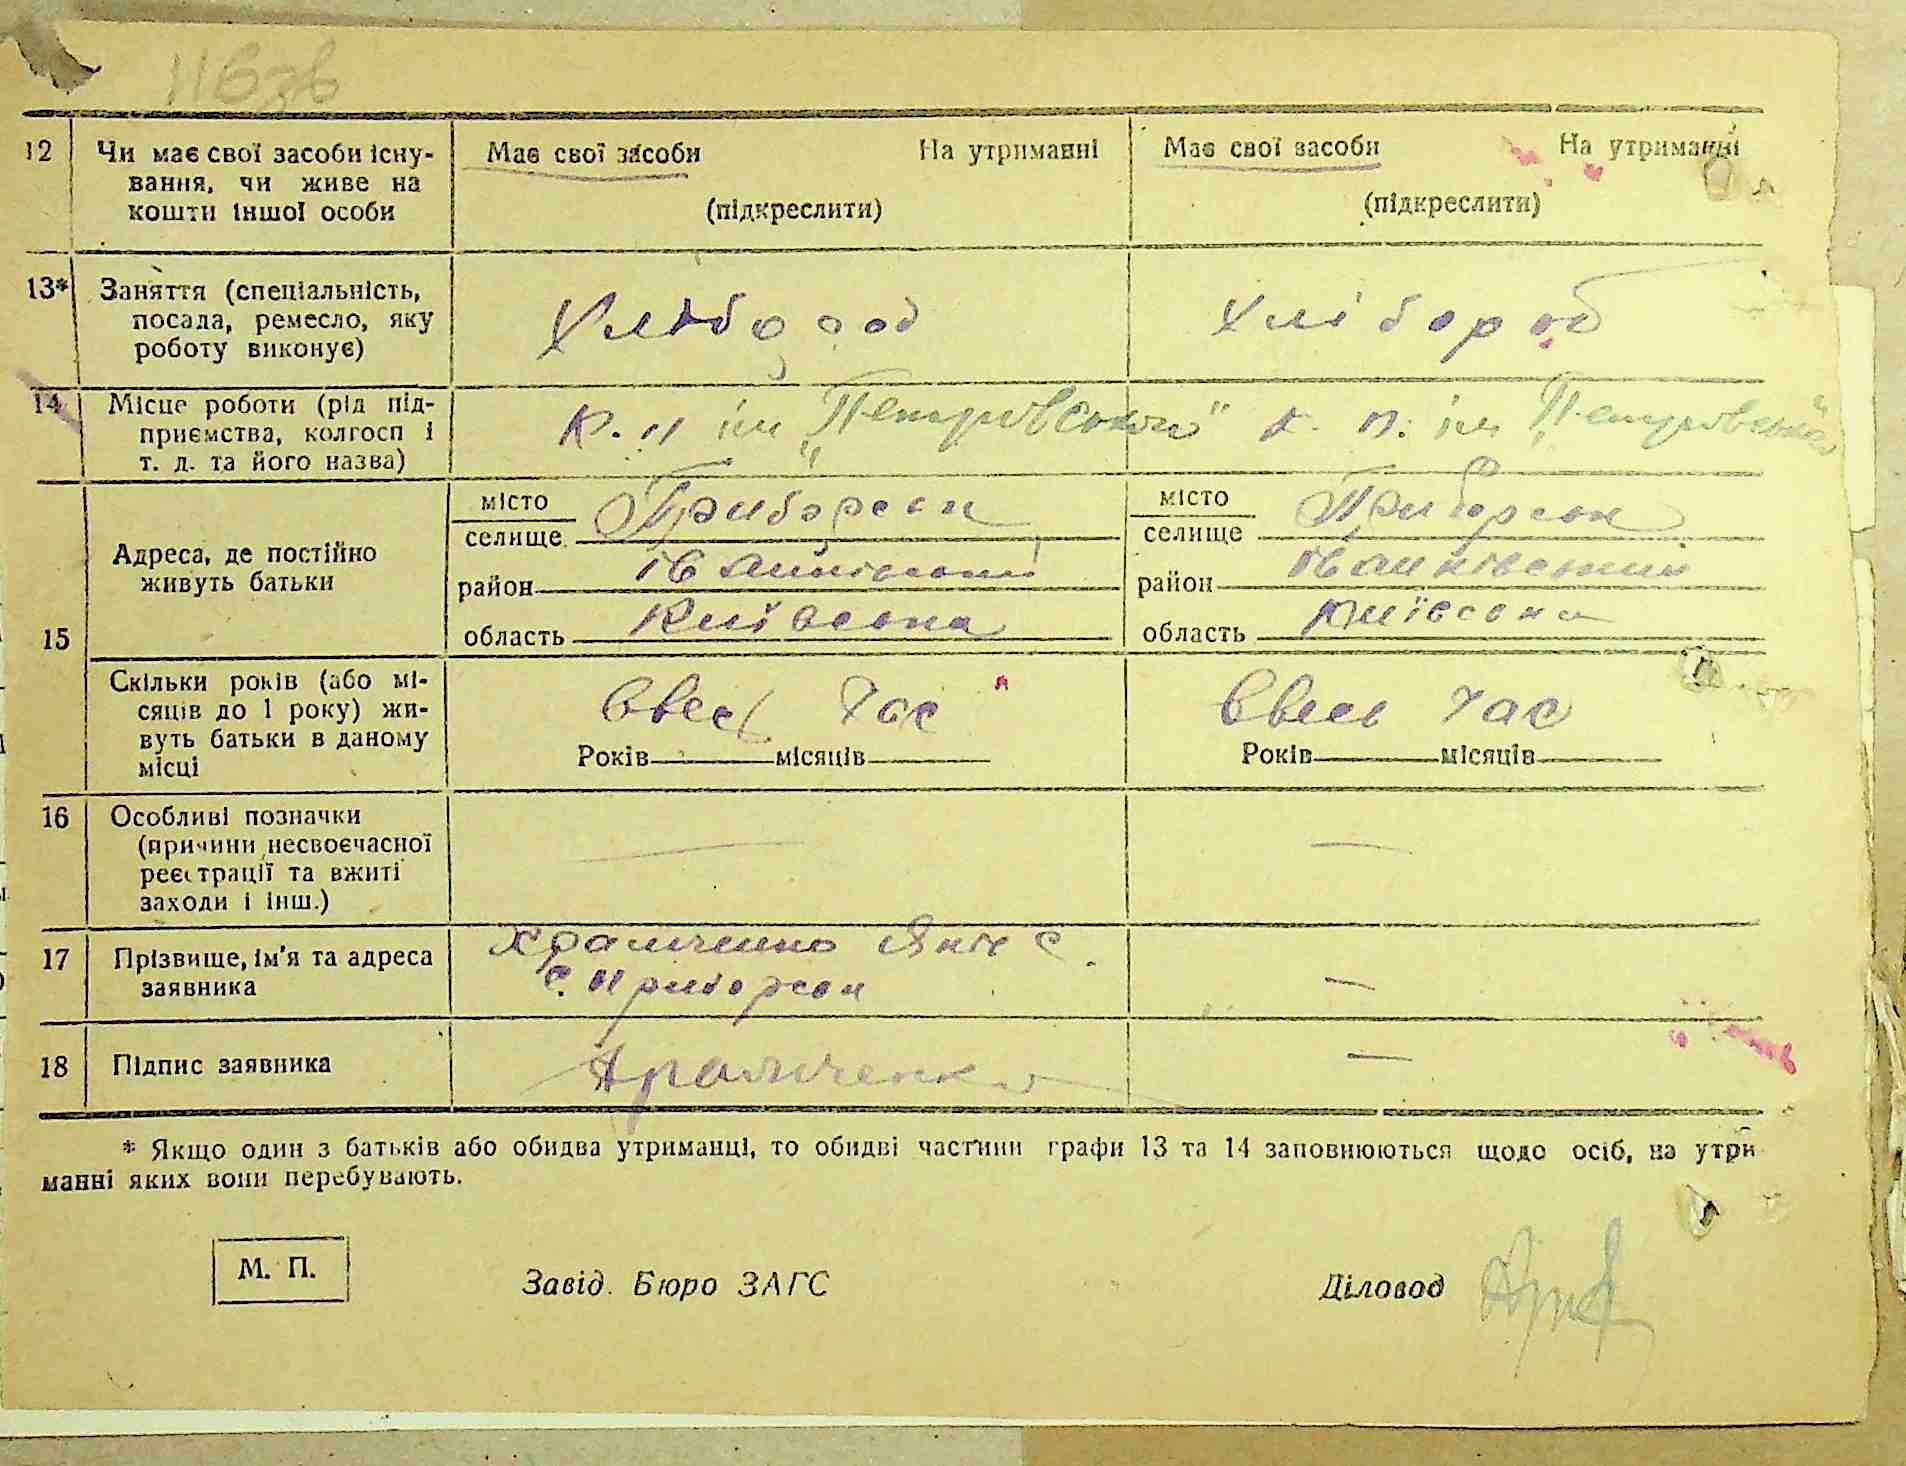 12
Чи має свої засоби існу-
вання, чи живе на
кошти іншої особи
Має свої засоби На утриманні
(підкреслити)
Має свої засоби На утриманні
(підкреслити)
13*
Заняття (спеціальність,
посада, ремесло, яку
роботу виконує)
Хлібороб
Хлібороб
14
Місце роботи (рід під-
приємства, колгосп і
т. д. та його назва)
к. п. ім „Петровського"
к. п. ім „Петровського"
15
Адреса, де постійно
живуть батьки
місто
селище Приборськ
район Іванківський
область Київська
місто
селище Приборськ
район Іванківський
область Київська
Скільки років (або мі-
сяців до 1 року) жи-
вуть батьки в даному
місці
Ввесь час
Років місяців
Ввесь час
Років місяців
16
Особливі позначки
(причини несвоєчасної
реєстрації та вжиті
заходи і інш.)
—
—
17
Прізвище, ім'я та адреса
заявника
Храмченко С.
с. Приборськ
—
18
Підпис заявника
Храмченко
—
* Якщо один з батьків або обидва утриманці, то обидві частини графи 13 та 14 заповнюються щодо осіб, на утри
манні яких вони перебувають.
М. П.
Завід. Бюро ЗАГС
Діловод